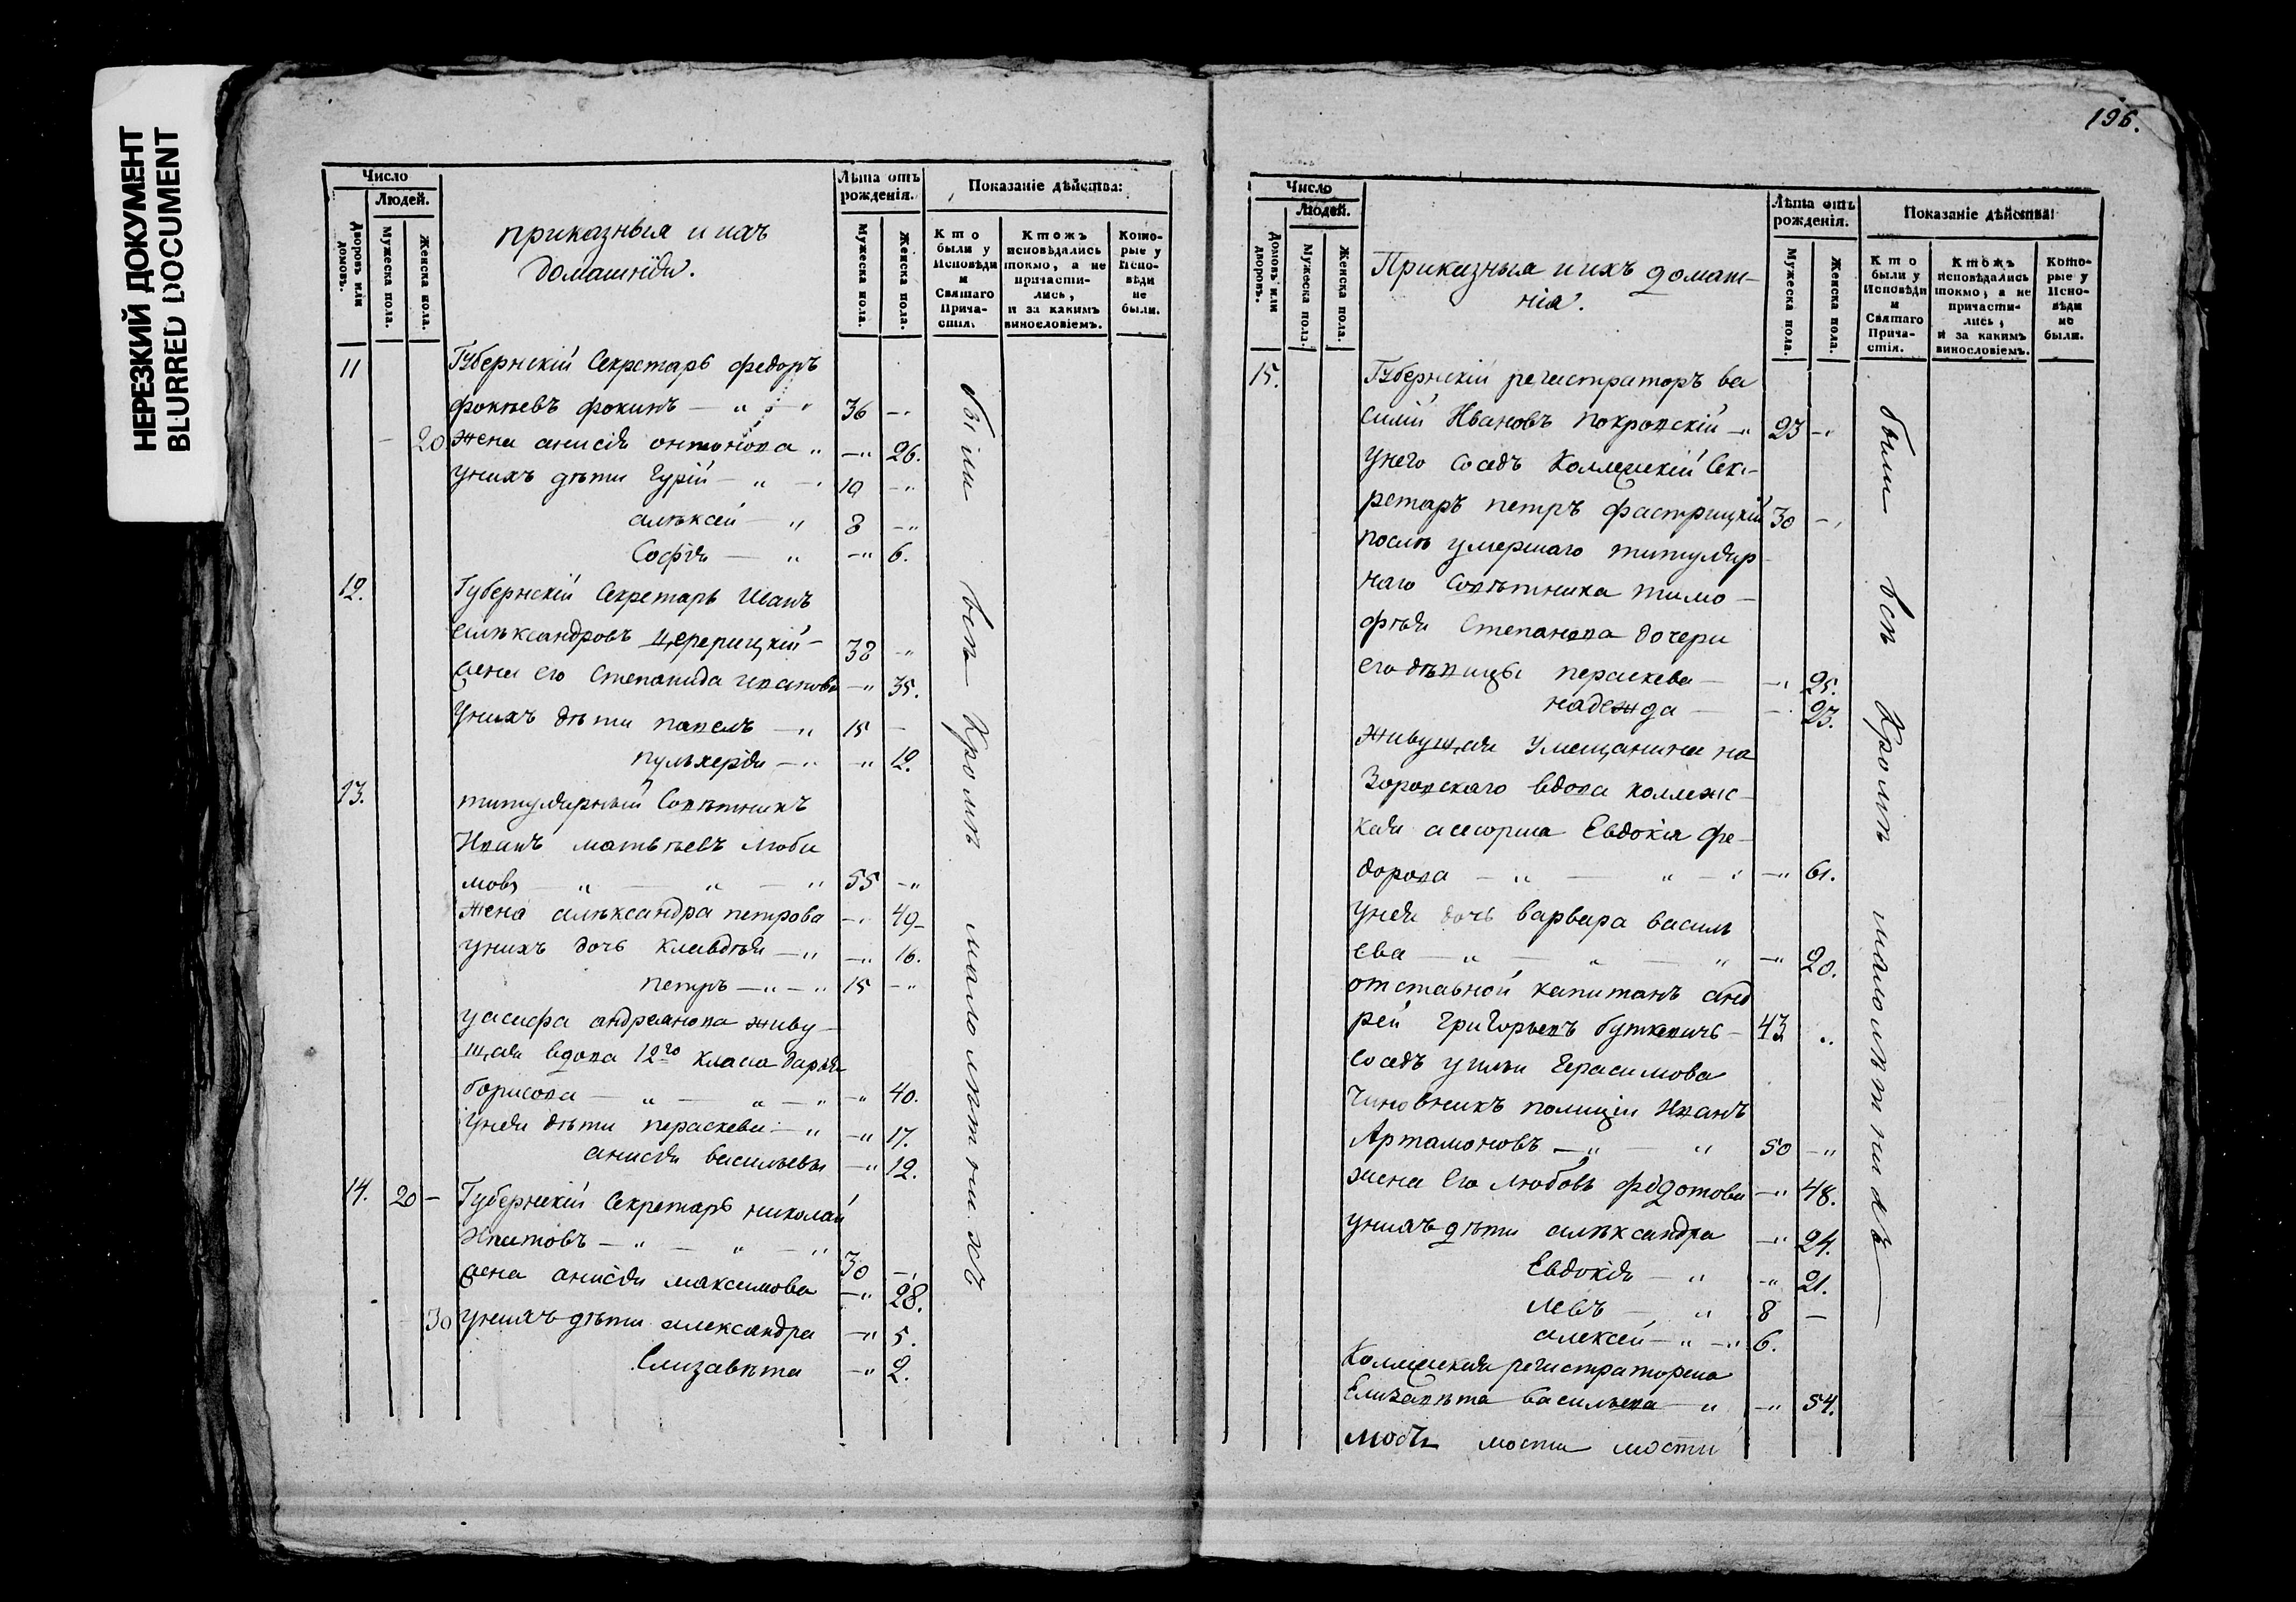 НЕРЕЗКИЙ ДОКУМЕНТ
BLURRED DOCUMENT
Число
Людей.
Дворовъ или домовъ.
Мужеска пола.
Женска пола.
приказныя и ихъ
домашнія.
Лѣта отъ рожденія.
Мужеска пола.
Женска пола.
Показаніе дѣйства:
Кто были у Исповѣди и Святаго Причастія.
Ктожъ исповѣдались токмо, а не причастились, и за какимъ винословіемъ.
Которые у Исповѣди не были.
11 Губернскій Секретарь федоръ
фокѣевъ фокинъ — „ — 36 —„
— 20. жена анисія онтонова „ —„ 26.
унихъ дѣти Гурій — „ — 10 —„
алѣксѣй — „ 8 —„
Софія — „ —„ 6.
12. Губернскій Секретарь Иванъ
алѣксандровъ — 38 „
жена его Степанида иванова —„ 35.
Унихъ дѣти павелъ —„ 15 —
пульхерія —„ —„ 12.
13. титулярный Совѣтникъ
Иванъ матвѣевъ люби
мовъ — „ — „ — „ 55 —„
жена алѣксандра петрова —„ 49—
унихъ дочь клавдѣя —„ —„ 16.
петръ —„—„ 15 —„
уасифа андреянова живу—
щая вдова 12го класа дарья
борисова — „ — „ — „ —„ 40.
Унея дѣти пераскева —„ —„ 17.
анисія васильевы —„ 12.
14. 20 — Губернскій Секретарь николай
Ипатовъ — „ — „ — „ 30 —„
жена анисія максимова —„ 28.
30 унихъ дѣти александра —„ 5.
Елизавѣта —„ 2.
были всѣ Кромѣ малолѣтнихъ
196.
Число
Людей.
Домовъ или дворовъ.
Мужеска пола.
Женска пола.
Приказныя и ихъ домаш—
нія.
Лѣта отъ рожденія.
Мужеска пола.
Женска пола.
Показаніе дѣйства:
Кто были у Исповѣди и Святаго Причастія.
Ктожъ исповѣдались токмо, а не причастились, и за какимъ винословіемъ.
Которые у Исповѣди не были.
15. Губернскій регистраторъ ва
силій Ивановъ покровскій —„ 23 —„
Унего сосѣдъ Коллежскій Сек—
ретарь петръ фастрицкій 30 —„
послѣ умершаго титуляр
наго Совѣтника тимо—
фѣя Степанова дочери
его дѣвицы пераскева — —„ 25.
надежда — —„ 23.
живущая умещанина на
Зоровскаго вдова коллежс—
кая асесорша Евдокія фе—
дорова — „ — „ — „ —„ 61.
Унея дочь варвара василь
ева — „ — „ — „ —„ 20.
отставной капитанъ анд
рей григорьевъ буткевичь — 43 „
сосѣдъ уильи Герасимова
Чиновникъ полиціи Иванъ
Артамоновъ —„ — „ 50 —„
жена его любовь федотова —„ 48.
унихъ дѣти алѣксандра —„ 24.
Евдокія — „ —„ 21.
левъ — „ 8 —
алексѣй —„ —„ 6.
Коллежская регистраторша
Елизавѣта васильева — „ —„ 54.
мости мости
были всѣ Кромѣ малолѣтнихъ —